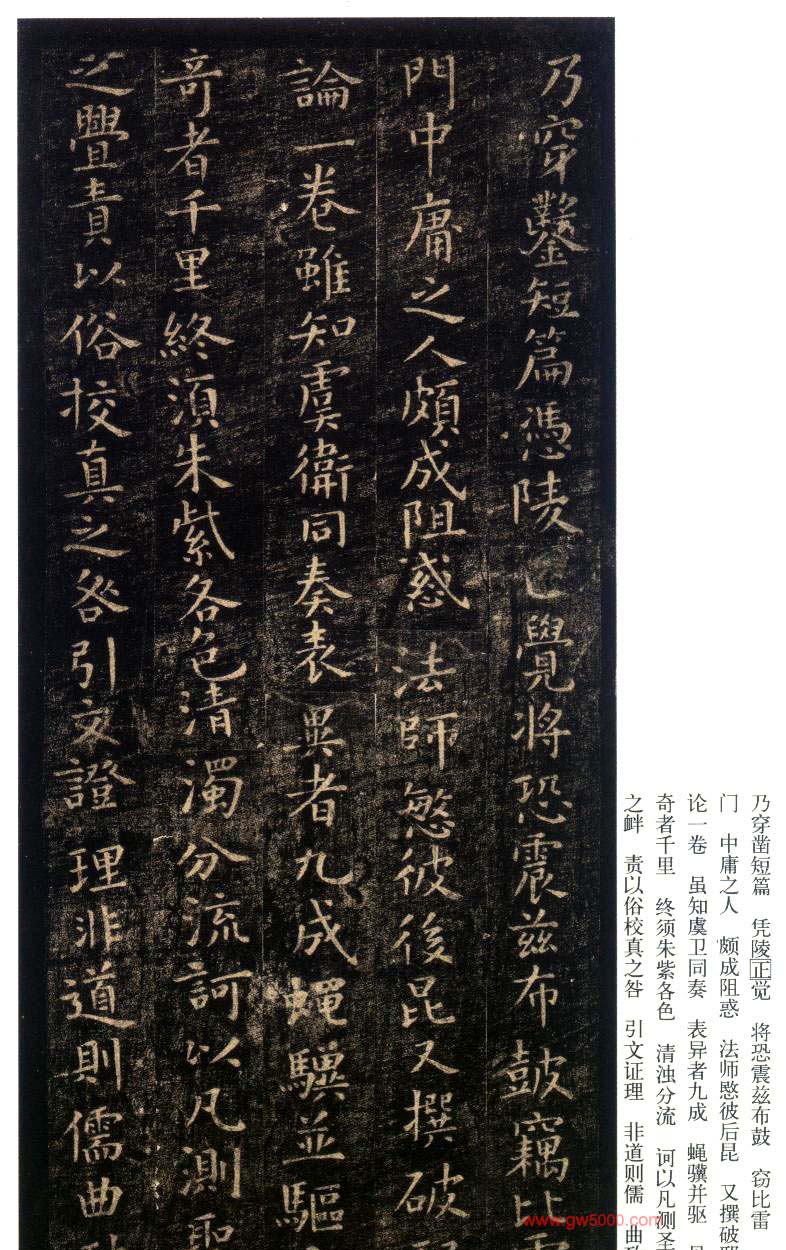 乃穿鑿短篇憑陵正覺將恐震茲布鼓竊比
門中庸之人頗成阻惑法師慜彼後昆又撰破
論一卷雖知虞衛同奏表異者九成蠅驥並驅
奇者千里終須朱紫各色清濁分流訶以凡測聖
之釁責以俗挍真之咎引文證理非道則儒曲
乃穿凿短篇 凭陵正觉 将恐震兹布鼓 窃比雷
门 中庸之人 颇成阻惑 法师愍彼后昆 又撰破
论一卷 虽知虞卫同奏 表异者九成 蝇骥并驱
奇者千里 终须朱紫各色 清浊分流 诃以凡测圣
之衅 责以俗校真之咎 引文证理 非道则儒 曲
www.gw5000.com